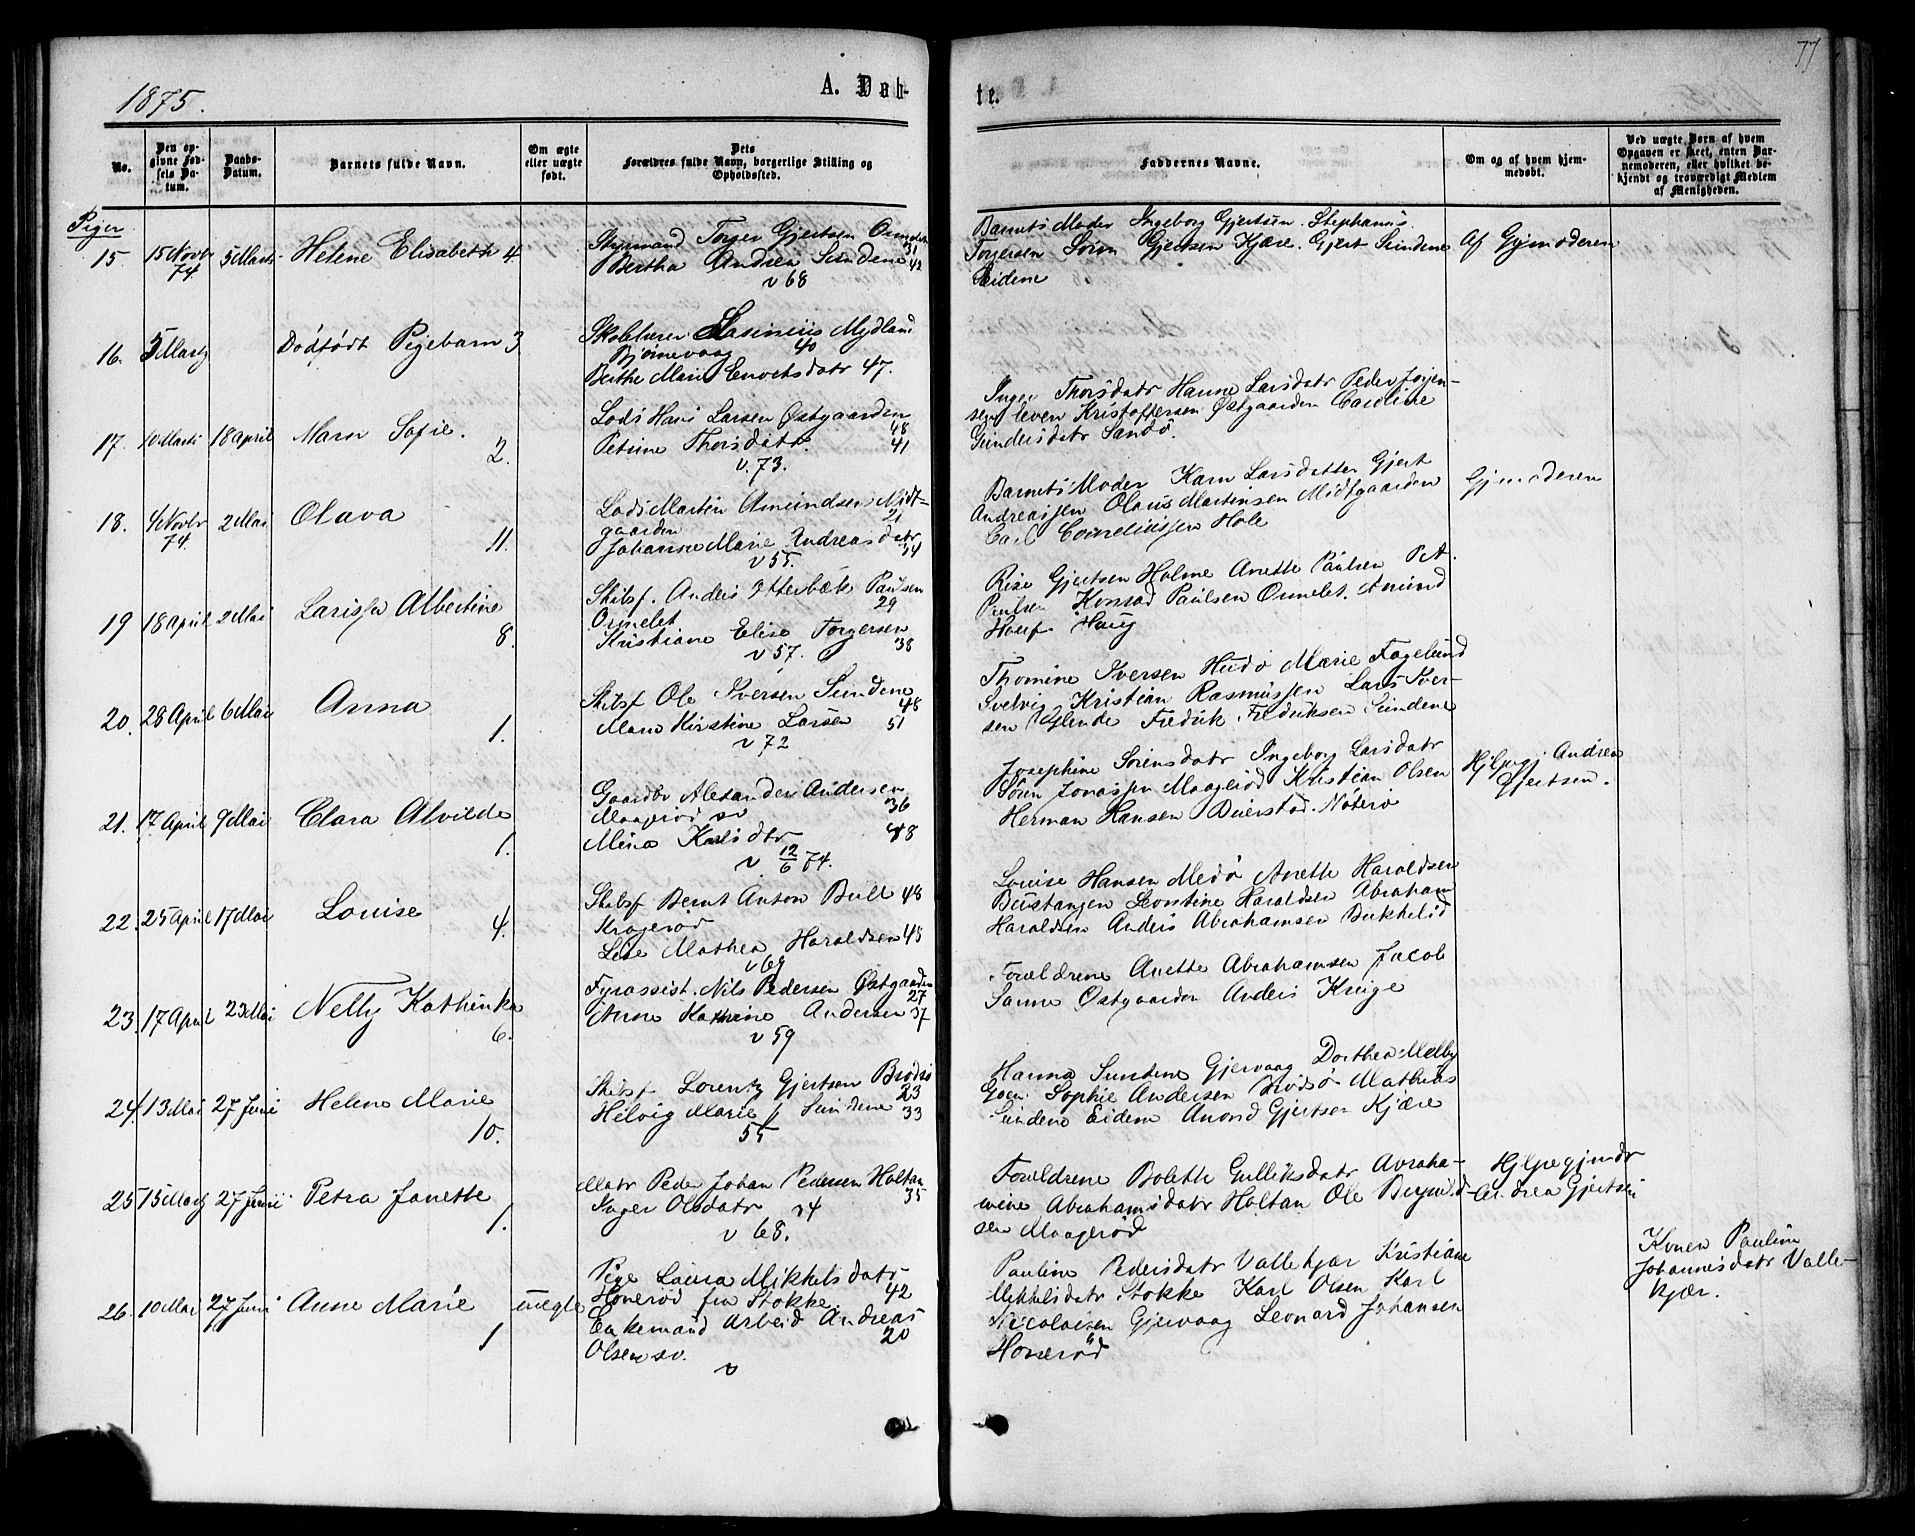 77
1875.
A. Døb-
te.
No.
Den op-
givne Fød-
sels Da-
tum.
Daabs-
Datum.
Barnets fulde Navn.
Om ægte
eller uægte
født.
Dets
Forældres fulde Navn, borgerlige Stilling og
Opholdssted.
Faddernes Navne.
Om og af hvem hjem-
medøbt.
Ved uægte Børn af hvem
Opgaven er skeet, enten Bar-
nemoderen, eller hvilket be-
kjendt og troværdigt Medlem
af Menigheden.
Piger
15. 15 Novbr 74 5 Marts Helene Elisabeth 4
Styrmand Torger Gjertsen Ormelet 31
Bertha Andrea Sundene 42
v 68
Barnets Moder Ingeborg Gjertsen. Stephanus
Torgersen Søren Gjertsen Kjære. Gjert Sundene
Eidene
Af Gjmoderen
16. 5 Marts Dødfødt Pigebarn 3
Skolelærer Mydland
Bjørnevaag 40
Berthe Marie Enochsdatr 47.
17. 10 Marts 18 april Maren Sofie. 2.
Lods Hans Larsen Østgaarden 48
Petrine Thorsdatr. 41
v. 73.
Inger Thorsdatr Hanne Larsdatr Peder Jørgen-
sen Even Kristoffersen Østgaarden Caroline
Gundersdatr Sandø.
18. 4 Novbr 74. 2 Mai Olava 11.
Lods Martin Amundsen Midt-
gaarden 21
Johanne Marie Andreasdatr 34
v 55.
Barnets Moder Karn Larsdatter Gjert
Andreassen Olaus Martinsen Midtgaarden
Carl Corneliussen Hole
Gjmoderen
19 18 April 2 Mai Larissa Albertine 8.
Skibsf. Anders Otterbæk Paulsen 29
Ormelet
Kristiane Elise Torgersen 38
v 57.
Gjertsen Holme Anette Paulsen Pet.
Paulsen Konrad Paulsen Ormelet. Amund
Haug
20. 28 April 6 Mai Anna 1.
Skibsf Ole Iversen Sundene 48
Maren Kirstine Larsen 51
v 72
Thomine Iversen Hudø Marie Fagelund
Svelvig Kristian Rasmussen Lars Iver-
sen Glende Fredrik Fredriksen Sundene
21. 17 April 9 Mai Clara Alvilde 1.
Gaardbr Alexander Andersen 36
Maagerød sv
Mina Karlsdatr 48
v. 12/6 74.
Josephine Sørensdatr Ingeborg Larsdatr
Søren Jonassen Maagerød Kristian Olsen
Herman Hansen Buerstad. Nøterø
Hjlpegj Andrea
Gjertsen.
22. 25 April 17 Mai Louise 4.
Skibsf Bernt Anton Bull 48
Kragerød
Lise Mathea Haraldsen 48
v 69
Louise Hansen Medø Anette Haraldsen
Bustangen Leontine Haraldsen Abraham
Haraldsen Anders Abrahamsen Bukkelid
23. 17 April 23 Mai Nelly Kathinka 6.
Fyrassist. Nils Pedersen Østgaarden 27
Anne Kathrine Andersen 37
v 59
Forældrene Anette Abrahamsen Jacob
Sanne Østgaarden Anders Kruge
24. 13 Mai 27 Juni Helene Marie 10.
Skibsf Lorentz Gjertsen Brødsø 23
Helvig Marie f Sundene 33
55
Hanna Sundene Gjervaag Dorthea Melby
Goen Sophie Andersen Brødsø Mathias
Sundene Eidene Anond Gjertsen Kjære
25 15 Marts 27 Juni Petra Janette 1.
Matr Peder Johan Pedersen Holtan 35
Inger Olsdatr 34
v 68.
Forældrene Bolette Gulliksdatr Avraha-
mine Abrahamsdatr Holtan Ole Brynild-
sen Maagerød
Hjlpegjmdr
Andrea Gjertsen
26. 10 Mai 27 Juni Anne Marie 1 uægte
Pige Laura Mikkelsdatr
Honerød fra Stokke. 42
Enkemand Arbeid Andreas 20
Olsen sv.
v
Pauline Pedersdatr Vallekjær Kristiane
Mikkelsdatr Stokke Karl Olsen Karl
Nicolaisen Gjervaag Leonard Johansen
Honerød
Konen Pauline
Johannesdatr Valle-
kjær.